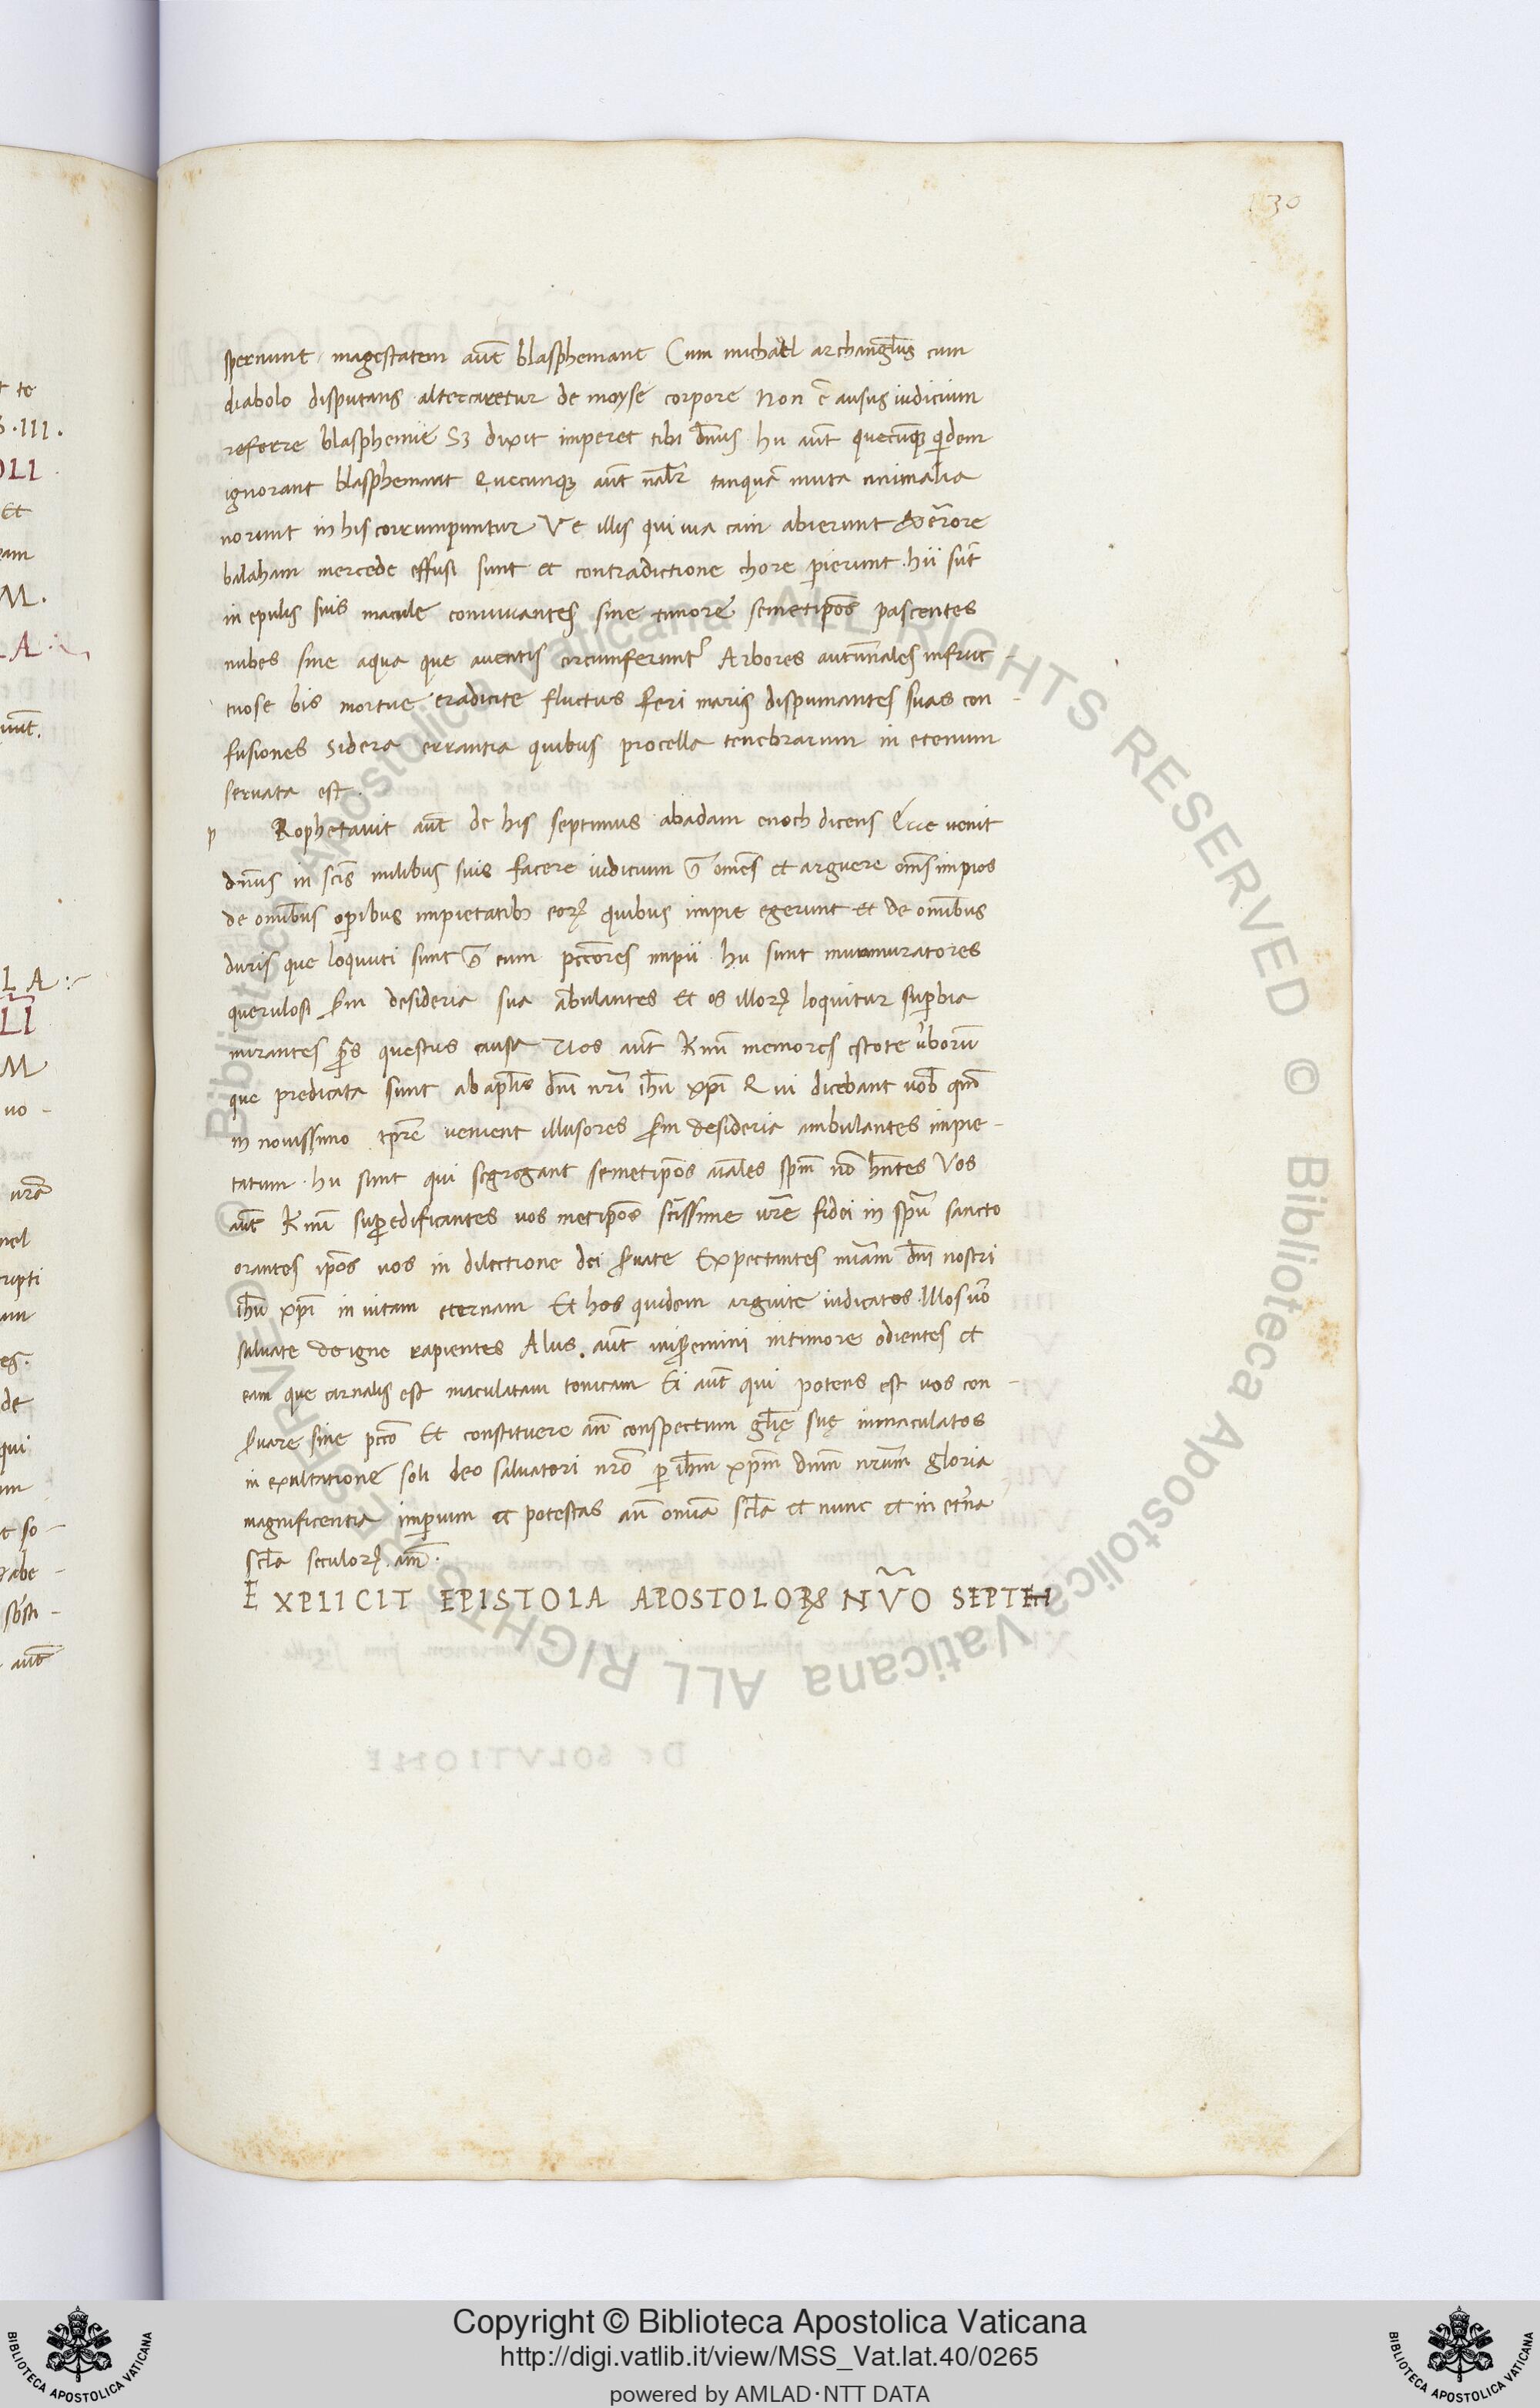 130
spernunt magestatem aut̄ blasphemant Cum michael archangl̄us cum
diabolo disputans altercaretur de moyse corpore Non ē ausus iudicium
referre blasphemie Sꝫ dixit imperet tibi dn̄us hii aut̄ quecūqꝫ qͥdem
ignorant blasphemant Quecunqꝫ aut̄ nal̄r tanquā muta animalia
norunt in his corrumpuntur Ve illis qui uia cain abierunt & errore
balaham mercede effusi sunt et contradictione chore perierunt. hii sūt
in epulis suis macule conuiuantes sine timore semetip̄os pascentes
nubes sine aqua que auentis circumferunt᷑ Arbores autūnales infruc-
tuose bis mortue eradicite fluctus feri maris dispumantes suas con-
fusiones Sidera errantia quibus procella tenebrarum in eternum
seruata est.
p Rophetauit aut̄ de his septimus abadam enoch dicens Ecce venit
dn̄us in scīs milibus suis facere iudicium ꝯ̄ omēs et arguere om̄s impios
de omībus oꝑibus impietatibꝫ eoꝝ quibus impie egerunt et de omībus
duris que loquuti sunt ꝯ̄ eum pcc̄ores impii hii sunt murmuratores
querulosi ẜm desideria sua ābulantes et os illoꝝ loquitur suꝑbia
mirantes ꝑs questus causa Uos aut̄ Kmī memores estote ūborū
que predicata sunt ab apl̄is dn̄i nr̄i ih̄u xp̄i Qui dicebant uob̄ qm̄
in nouissimo tp̄re uenient illusores ẜm desideria ambulantes impie-
tatum. hii sunt qui segregant semetip̄os aīales sp̄m nō hn̄tes Vos
aut̄ Kmī suꝑedificantes uos metip̄os sc̄issime ur̄e fidei in sp̄u sancto
orantes ip̄os uos in dilectione dei ẜuate Expectantes mīam dn̄i nostri
ih̄u xp̄i in uitam eternam Et hos quidem arguite iudicatos Illos uō
saluate de igne rapientes Aliis. aut̄ misēremini in timore odientes et
eam que carnalis est maculatam tonicam Ei aut̄ qui potens est uos con-
ẜuare sine pccō Et constituere an̄ conspectum gl̄ię suę immaculatos
in exultatione soli deo saluatori nr̄o ꝑ ih̄m xp̄m dn̄m nr̄um gloria
magnificentia imꝑium et potestas an̄ omīa scl̄a et nunc et in et̄na
scl̄a seculoꝝ. am̄.
EXPLICIT EPISTOLA APOSTOLOꝜ NV̄O SEPTEM
Copyright © Biblioteca Apostolica Vaticana
http://digi.vatlib.it/view/MSS_Vat.lat.40/0265
powered by AMLAD·NTT DATA